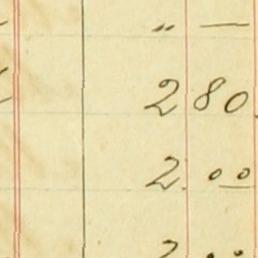 „ —
2 80
2. 00
2